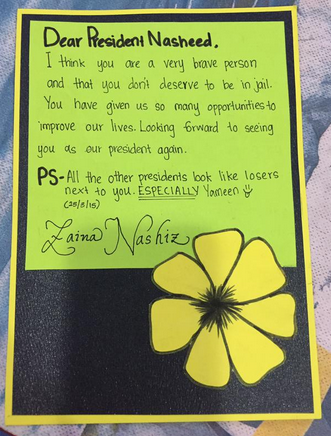 Dear President Nasheed,
I think you are a very brave person
and that you don't deserve to be in jail.
You have given us so many opportunities to
improve our lives. Looking forward to seeing
you as our president again.
PS- All the other presidents look like losers
next to you. ESPECIALLY Yameen
(25/8/15)
Zaina Nashiz